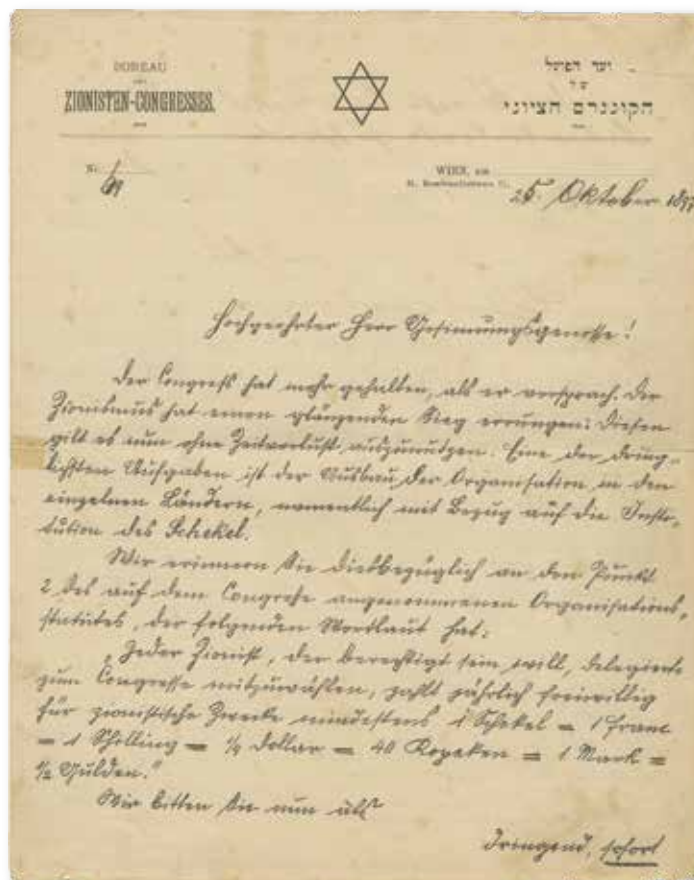 BUREAU
DES
ZIONISTEN-CONGRESSES.
ועד הפועל
של
הקונגרס הציוני
Nr.
WIEN, am
25. Oktober 1897
Hochgeehrter Herr Gesinnungsgenosse!
Der Congress hat mehr gehalten, als er versprach. Der
Zionismus hat einen glänzenden Sieg errungen: Diesen
gilt es nun ohne Zeitverlust auszunützen. Eine der dring-
lichsten Aufgaben ist der Ausbau der Organisation in den
einzelnen Ländern, namentlich mit Bezug auf die Insti-
tution des Schekel.
Wir erinnern Sie diesbezüglich an den Punkt
2 des auf dem Congresse angenommenen Organisations-
statutes, der folgenden Wortlaut hat:
„Jeder Zionist, der berechtigt sein will, Delegierte
zum Congresse mitzuwählen, zahlt jährlich freiwillig
für zionistische Zwecke mindestens 1 Schekel = 1 franc
= 1 Schilling = ¼ Dollar = 40 Kopeken = 1 Mark =
½ Gulden."
Wir bitten Sie nun als
dringend, sofort